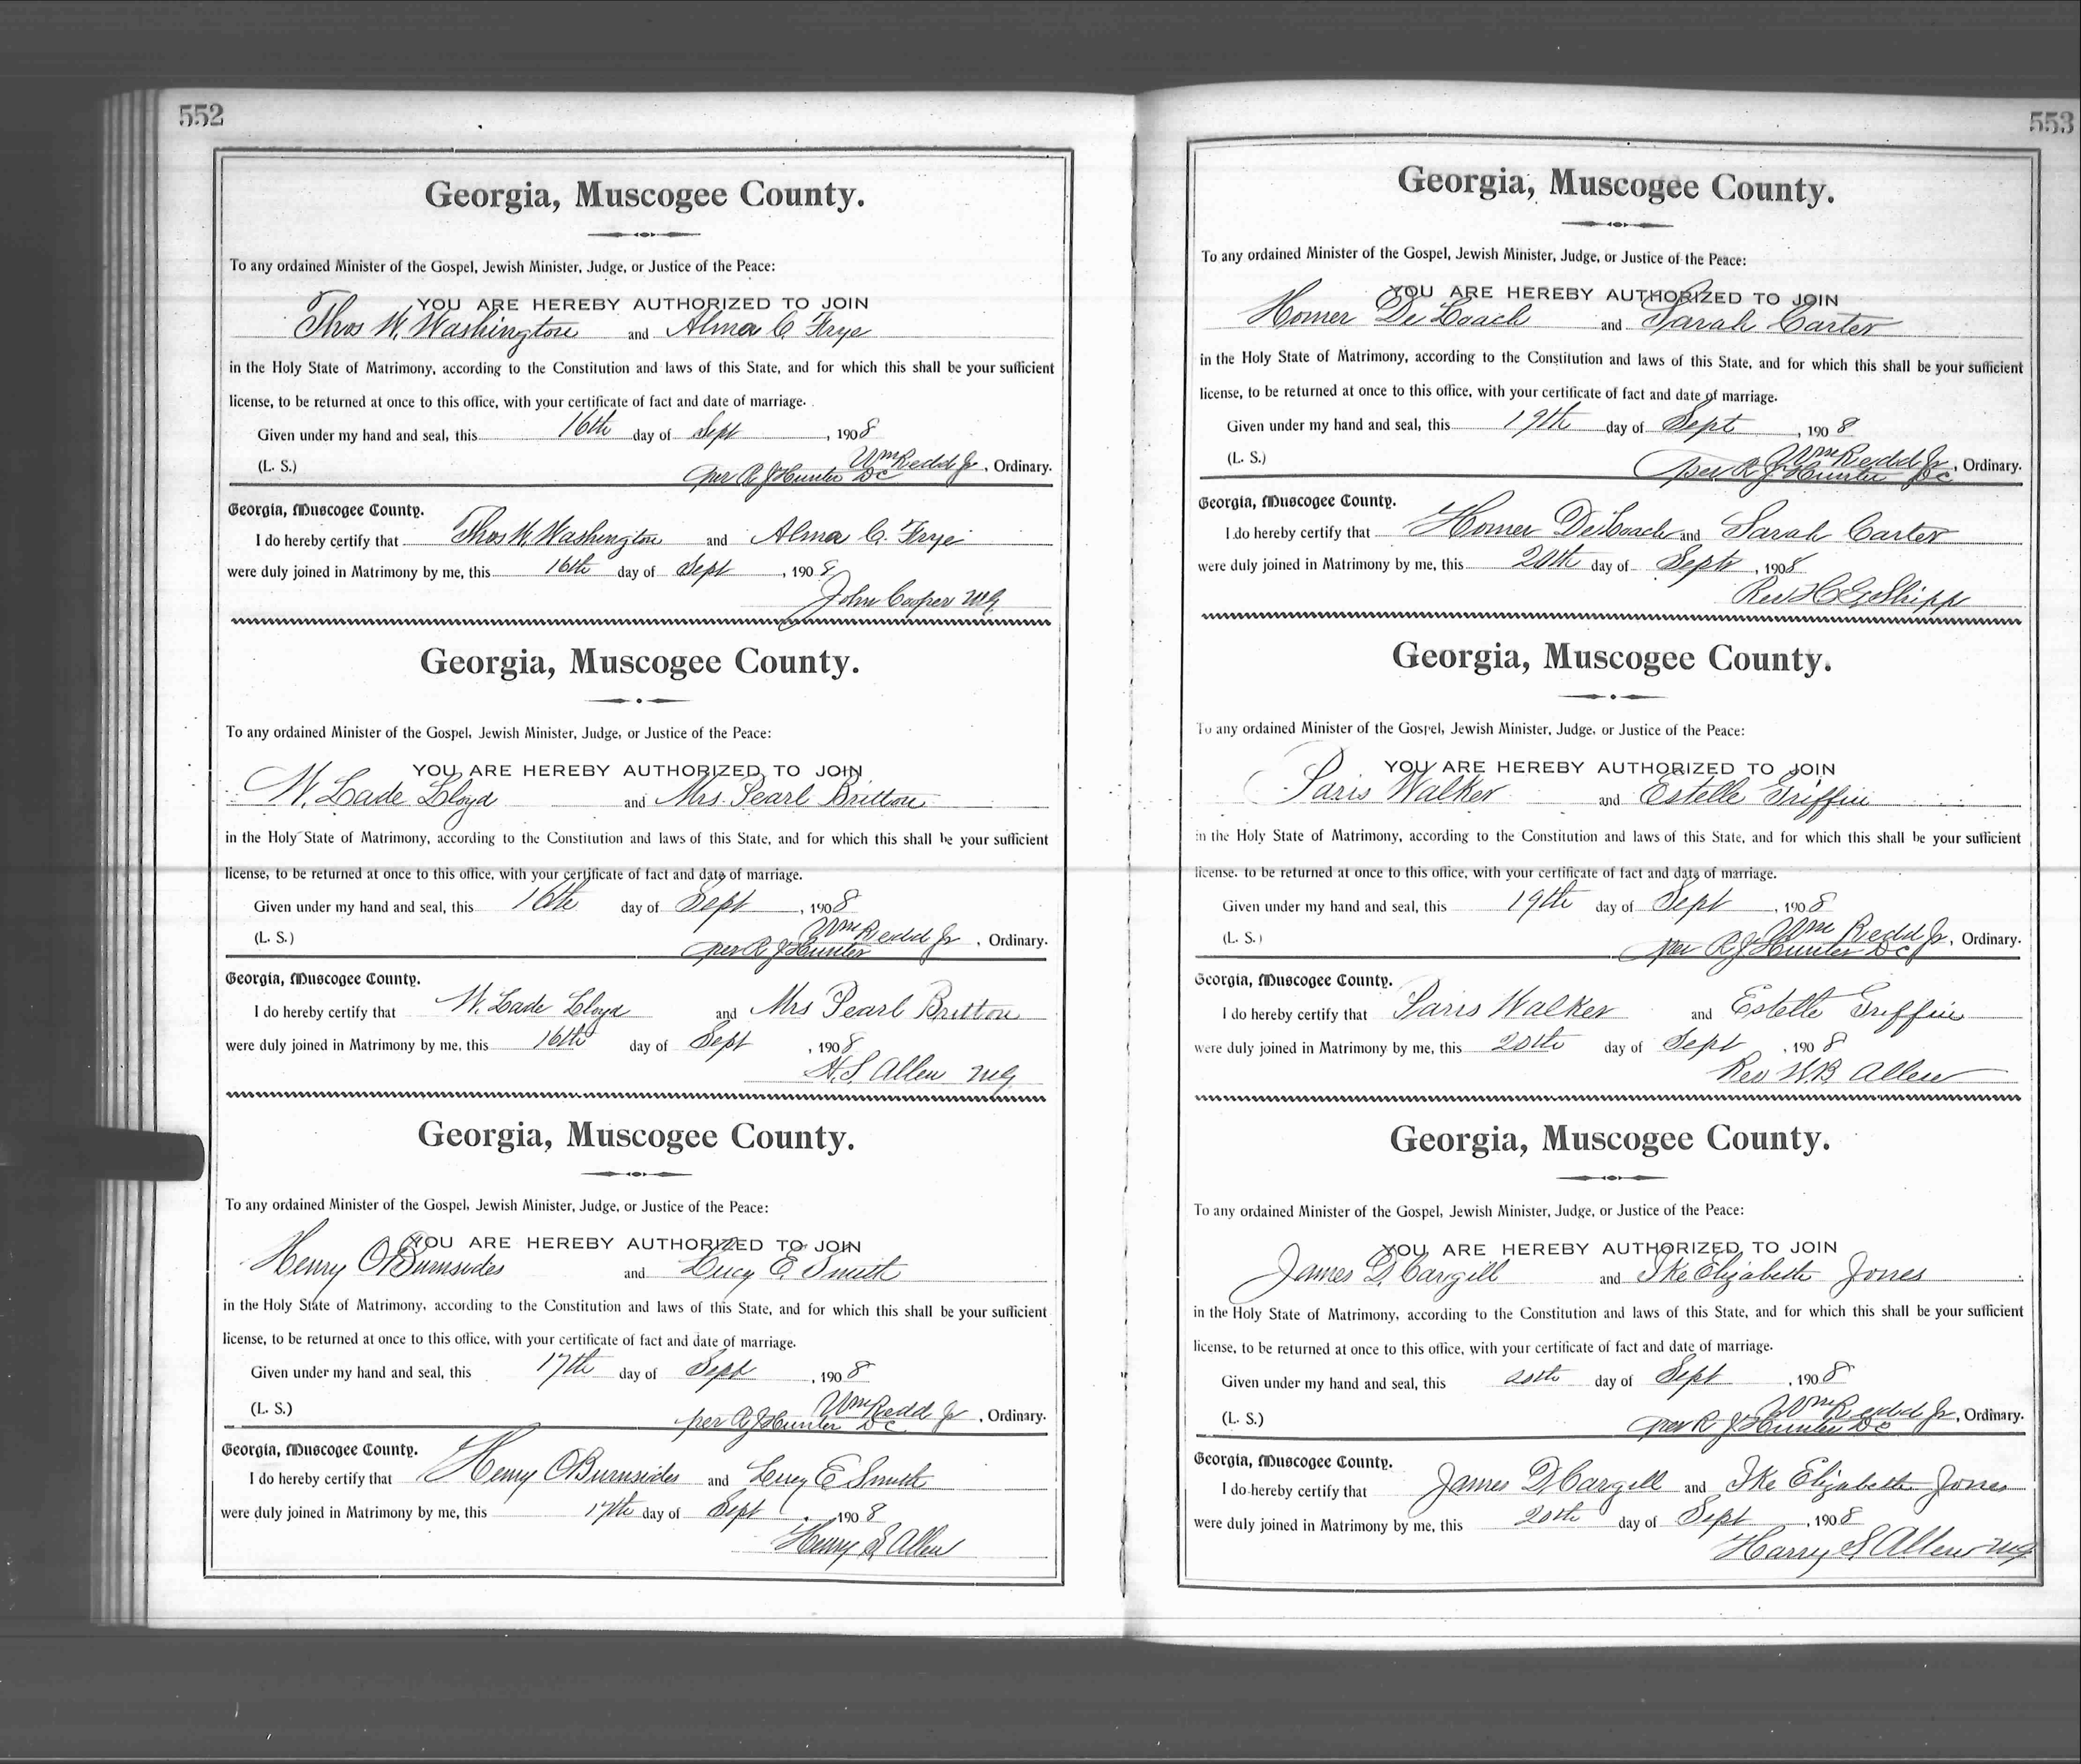 552
Georgia, Muscogee County.
To any ordained Minister of the Gospel, Jewish Minister, Judge, or Justice of the Peace:
YOU ARE HEREBY AUTHORIZED TO JOIN
Thos W. Washington and Alma C. Frye
in the Holy State of Matrimony, according to the Constitution and laws of this State, and for which this shall be your sufficient
license, to be returned at once to this office, with your certificate of fact and date of marriage.
Given under my hand and seal, this 16th day of Sept, 1908
(L. S.) Wm Redd Jr, Ordinary.
per R J Hunter DC
Georgia, Muscogee County.
I do hereby certify that Thos W. Washington and Alma C. Frye
were duly joined in Matrimony by me, this 16th day of Sept, 1908
John Cooper MG
Georgia, Muscogee County.
To any ordained Minister of the Gospel, Jewish Minister, Judge, or Justice of the Peace:
YOU ARE HEREBY AUTHORIZED TO JOIN
W. Lade Lloyd and Mrs. Pearl Britton
in the Holy State of Matrimony, according to the Constitution and laws of this State, and for which this shall be your sufficient
license, to be returned at once to this office, with your certificate of fact and date of marriage.
Given under my hand and seal, this 16th day of Sept, 1908
(L. S.) Wm Redd Jr, Ordinary.
per R J Hunter
Georgia, Muscogee County.
I do hereby certify that W. Lade Lloyd and Mrs Pearl Britton
were duly joined in Matrimony by me, this 16th day of Sept, 1908
H. S. Allen MG
Georgia, Muscogee County.
To any ordained Minister of the Gospel, Jewish Minister, Judge, or Justice of the Peace:
YOU ARE HEREBY AUTHORIZED TO JOIN
Henry O Burnsides and Lucy E. Smith
in the Holy State of Matrimony, according to the Constitution and laws of this State, and for which this shall be your sufficient
license, to be returned at once to this office, with your certificate of fact and date of marriage.
Given under my hand and seal, this 17th day of Sept, 1908
(L. S.) Wm Redd Jr, Ordinary.
per R J Hunter DC
Georgia, Muscogee County.
I do hereby certify that Henry O Burnsides and Lucy E Smith
were duly joined in Matrimony by me, this 17th day of Sept, 1908
Henry S. Allen
553
Georgia, Muscogee County.
To any ordained Minister of the Gospel, Jewish Minister, Judge, or Justice of the Peace:
YOU ARE HEREBY AUTHORIZED TO JOIN
Homer De Loach and Sarah Carter
in the Holy State of Matrimony, according to the Constitution and laws of this State, and for which this shall be your sufficient
license, to be returned at once to this office, with your certificate of fact and date of marriage.
Given under my hand and seal, this 19th day of Sept, 1908
(L. S.) Wm Redd Jr, Ordinary.
per R J Hunter DC
Georgia, Muscogee County.
I do hereby certify that Homer De Loach and Sarah Carter
were duly joined in Matrimony by me, this 20th day of Sept, 1908
Rev H C G Shipp
Georgia, Muscogee County.
To any ordained Minister of the Gospel, Jewish Minister, Judge, or Justice of the Peace:
YOU ARE HEREBY AUTHORIZED TO JOIN
Paris Walker and Estelle Griffin
in the Holy State of Matrimony, according to the Constitution and laws of this State, and for which this shall be your sufficient
license. to be returned at once to this office, with your certificate of fact and date of marriage.
Given under my hand and seal, this 19th day of Sept, 1908
(L. S.) Wm Redd Jr, Ordinary.
per R J Hunter DC
Georgia, Muscogee County.
I do hereby certify that Paris Walker and Estelle Griffin
were duly joined in Matrimony by me, this 20th day of Sept, 1908
Rev W. B. Allen
Georgia, Muscogee County.
To any ordained Minister of the Gospel, Jewish Minister, Judge, or Justice of the Peace:
YOU ARE HEREBY AUTHORIZED TO JOIN
James D. Cargill and Ike Elizabeth Jones
in the Holy State of Matrimony, according to the Constitution and laws of this State, and for which this shall be your sufficient
license, to be returned at once to this office, with your certificate of fact and date of marriage.
Given under my hand and seal, this 20th day of Sept, 1908
(L. S.) Wm Redd Jr, Ordinary.
per R J Hunter DC
Georgia, Muscogee County.
I do hereby certify that James D. Cargill and Ike Elizabeth Jones
were duly joined in Matrimony by me, this 20th day of Sept, 1908
Harry S. Allen MG